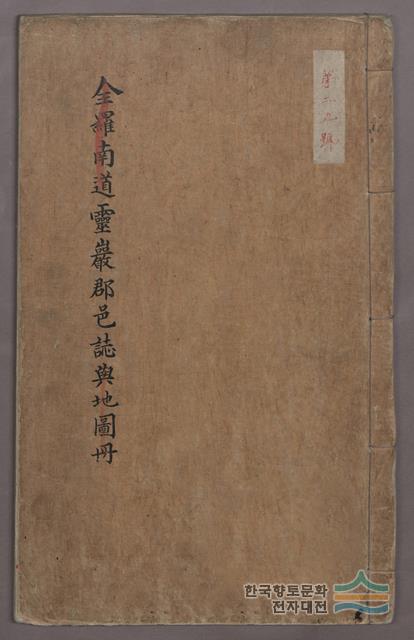 第二九號
全羅南道靈巖郡邑誌與地圖冊
한국향토문화
전자대전